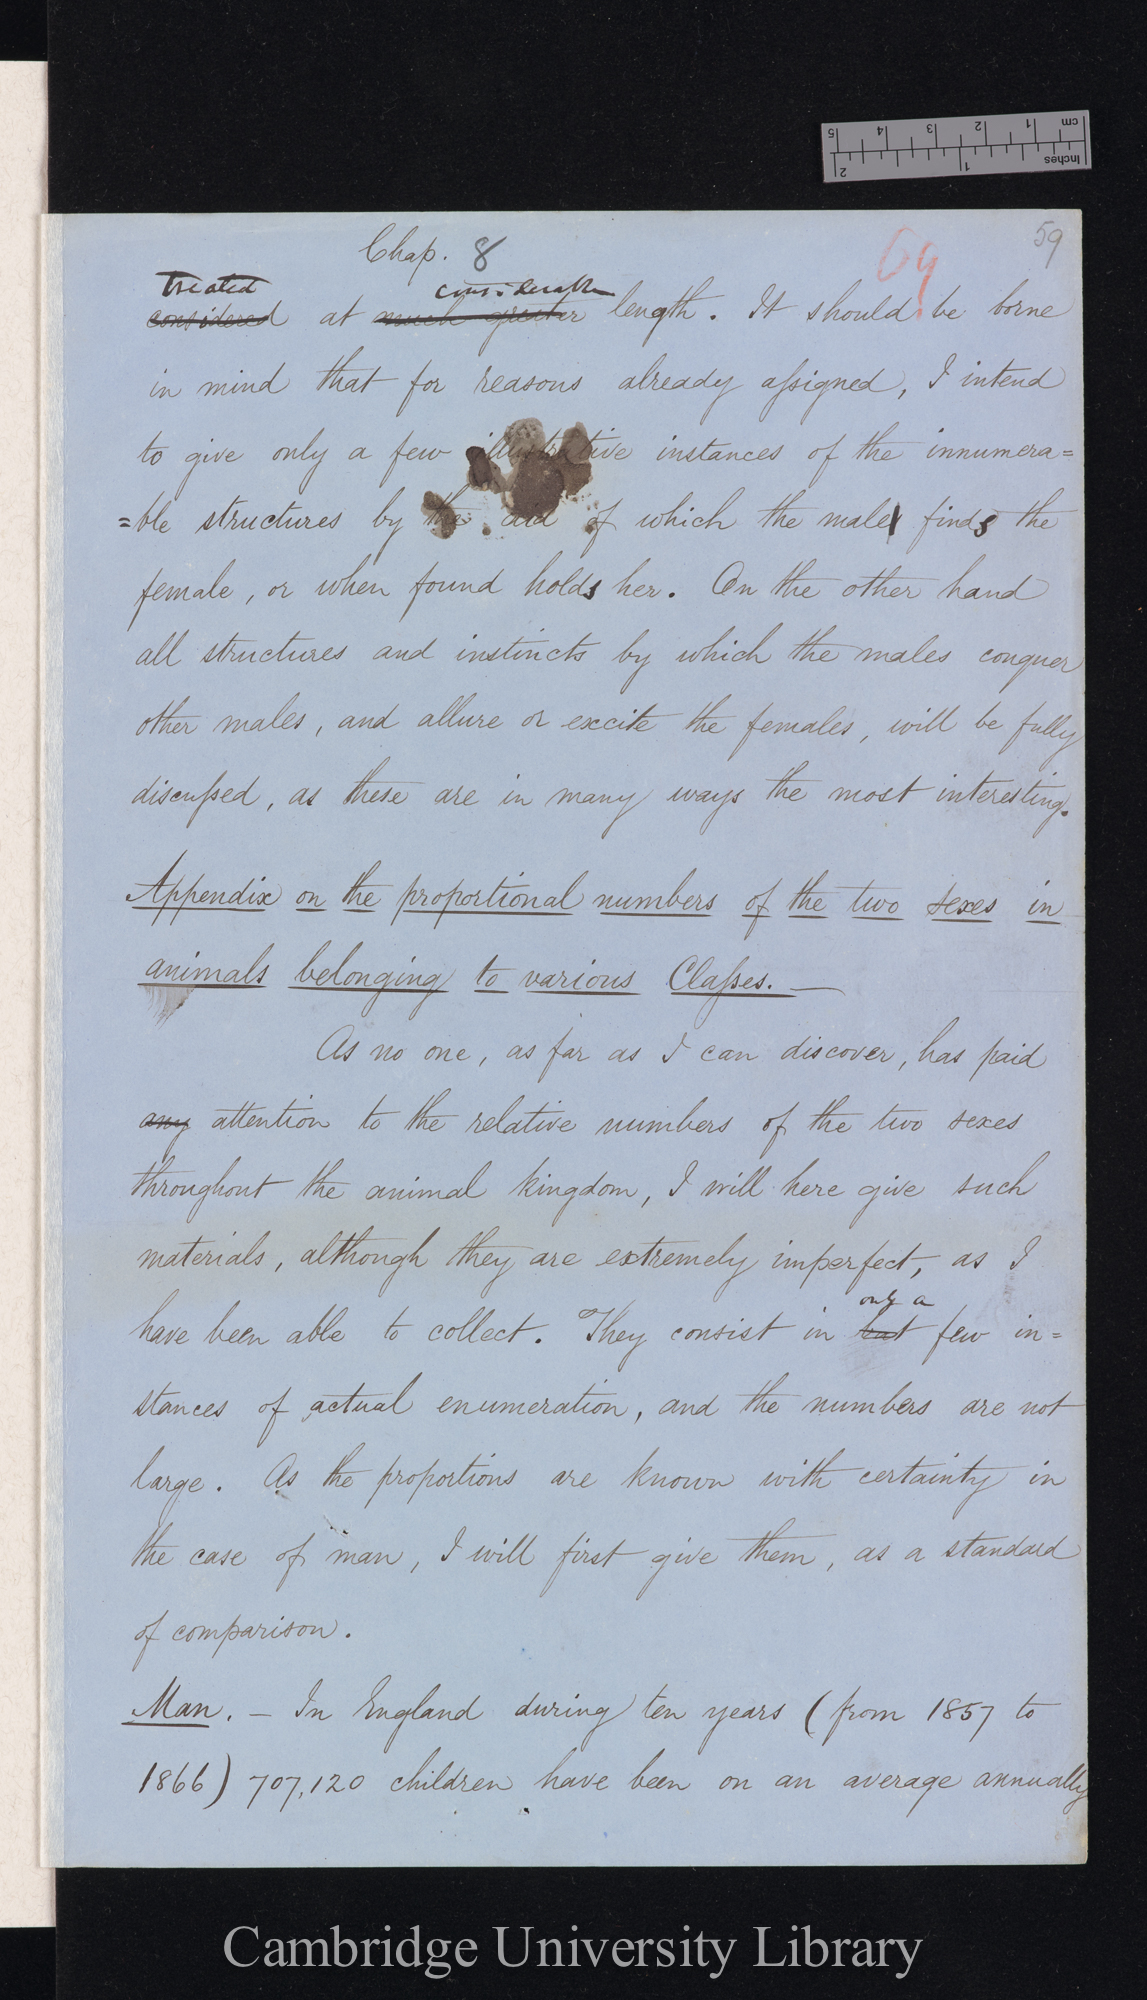 cm 1 2 3 4 5
Inches 1 2
Chap. 8
69
59
treated considerable
considered at much greater length. It should be borne
in mind that for reasons already aſsigned, I intend
to give only a few illustrative instances of the innumera=
=ble structures by the aid of which the male finds the
female, or when found holds her. On the other hand
all structures and instincts by which the males conquer
other males, and allure or excite the females, will be fully
discuſsed, as these are in many ways the most interesting.
Appendix on the proportional numbers of the two sexes in
animals belonging to various Claſses. —
As no one, as far as I can discover, has paid
any attention to the relative numbers of the two sexes
throughout the animal kingdom, I will here give such
materials, although they are extremely imperfect, as I
only a
have been able to collect. They consist in but few in=
stances of actual enumeration, and the numbers are not
large. As the proportions are known with certainty in
the case of man, I will first give them, as a standard
of comparison.
Man. — In England during ten years (from 1857 to
1866) 707,120 children have been on an average annually
Cambridge University Library